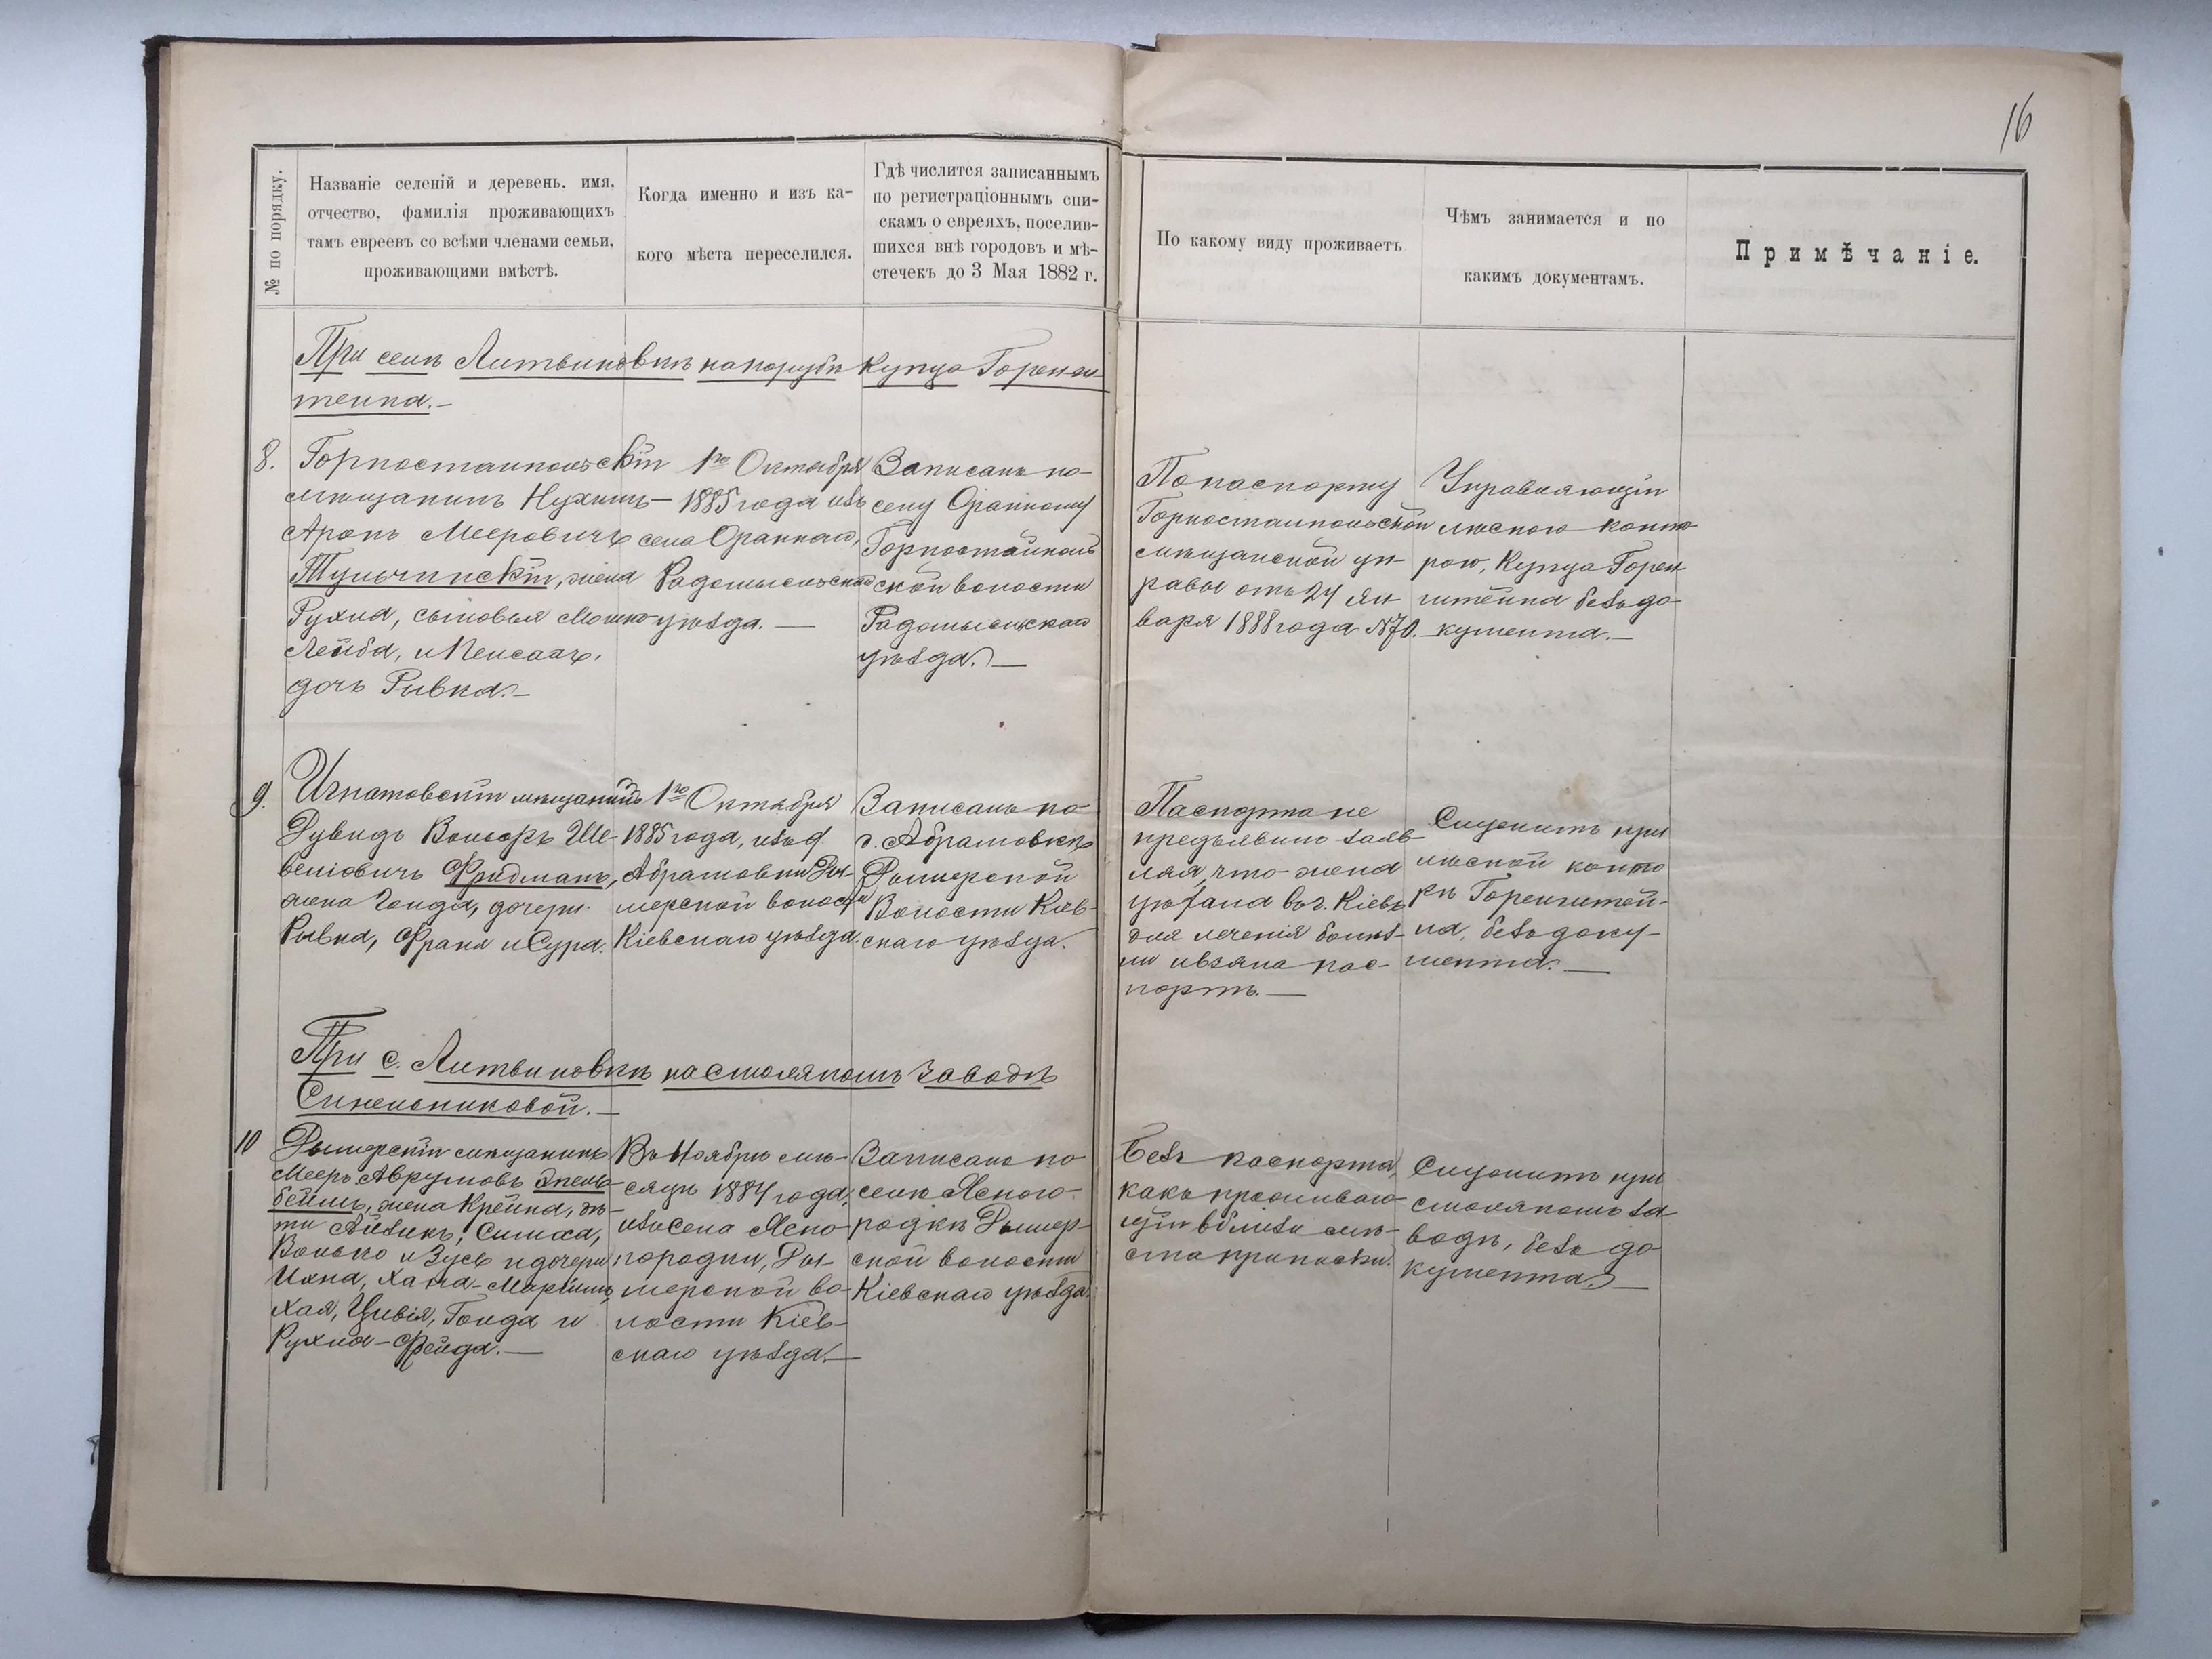 16
№ по порядку.
Названіе селеній и деревень, имя,
отчество, фамилія проживающихъ
тамъ евреевъ со всѣми членами семьи,
проживающими вмѣстѣ.
Когда именно и изъ ка-
кого мѣста переселился.
Гдѣ числится записаннымъ
по регистраціоннымъ спи-
скамъ о евреяхъ, поселив-
шихся внѣ городовъ и мѣ-
стечекъ до 3 Мая 1882 г.
По какому виду проживаетъ
Чѣмъ занимается и по
какимъ документамъ.
Примѣчаніе.
При селѣ Литвиновкѣ на порубѣ Купца Горенш-
тейна.—
8.
Горностайпольскій
мѣщанинъ Нухимъ—
Аронъ Мееровичъ
Тульчинскій, жена
Рухля, сыновья Мошко
Лейба, и Пейсахъ,
дочь Ривка.—
1го Октября
1885 года изъ
села Ораннаго,
Радомысльскаго
уѣзда.—
Записанъ по
селу Оранному
Горностайполь
ской волости
Радомысльскаго
уѣзда.—
По паспорту
Горностайпольской
мѣщанской уп-
равы отъ 24 Ян-
варя 1888 года №70.
Управляющій
лѣсною конто
рою, Купца Горен-
штейна безъ до-
кумента.—
9.
Игнатовскій мѣщанинъ
Дувидъ Вольфъ Ше-
веліовичъ Фридманъ,
жена Голда, дочери
Ривка, Франя и Сура.
1го Октября
1885 года, изъ д.
Абрамовки Ды-
мерской волости
Кіевскаго уѣзда.
Записанъ по
д. Абрамовкѣ
Дымерской
Волости Кіев-
скаго уѣзда.
Паспорта не
предъявилъ заяв-
ляя, что жена
уѣхала въ г. Кіевъ
для леченія болѣз-
ни и взяла пас-
портъ.—
Служитъ при
лѣсной конто
рѣ Горенштей-
на, безъ доку-
мента.—
При с. Литвиновкѣ на Смоляномъ Заводѣ
Синельниковой.—
10
Дымерскій мѣщанинъ
Мееръ Аврумовъ Эпель
беймъ, жена Крейна, дѣ-
ти Айзикъ, Симха,
Волько и Зусь и дочери
Ихна, Хана-Маріимъ,
Хая, Цивія, Голда и
Рухля-Фейга.—
Въ Ноябрѣ мѣ-
сяцѣ 1884 года,
изъ села Ясно-
городки, Ды-
мерской во-
лости Кіев-
скаго уѣзда.—
Записанъ по
селѣ Ясного-
родкѣ Дымер-
ской волости
Кіевскаго уѣзда.
Безъ паспорта,
какъ проживаю-
щій вблизи мѣ-
ста приписки.
Служитъ при
смоляномъ за
водѣ, безъ до
кумента.—